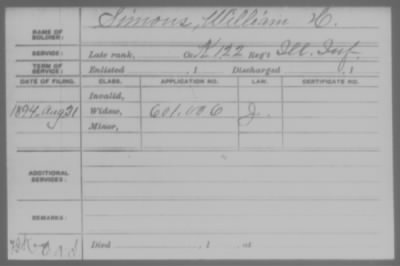 NAME OF SOLDIER: Simons, William H.
SERVICE: Late rank, Co. K 122 Reg't Ill. Inf.
TERM OF SERVICE: Enlisted , 1 Discharged , 1
DATE OF FILING. CLASS. APPLICATION NO. LAW. CERTIFICATE NO.
Invalid,
1894, Aug 31 Widow, 601.006 J.
Minor,
ADDITIONAL SERVICES:
REMARKS:
Died , 1 , at